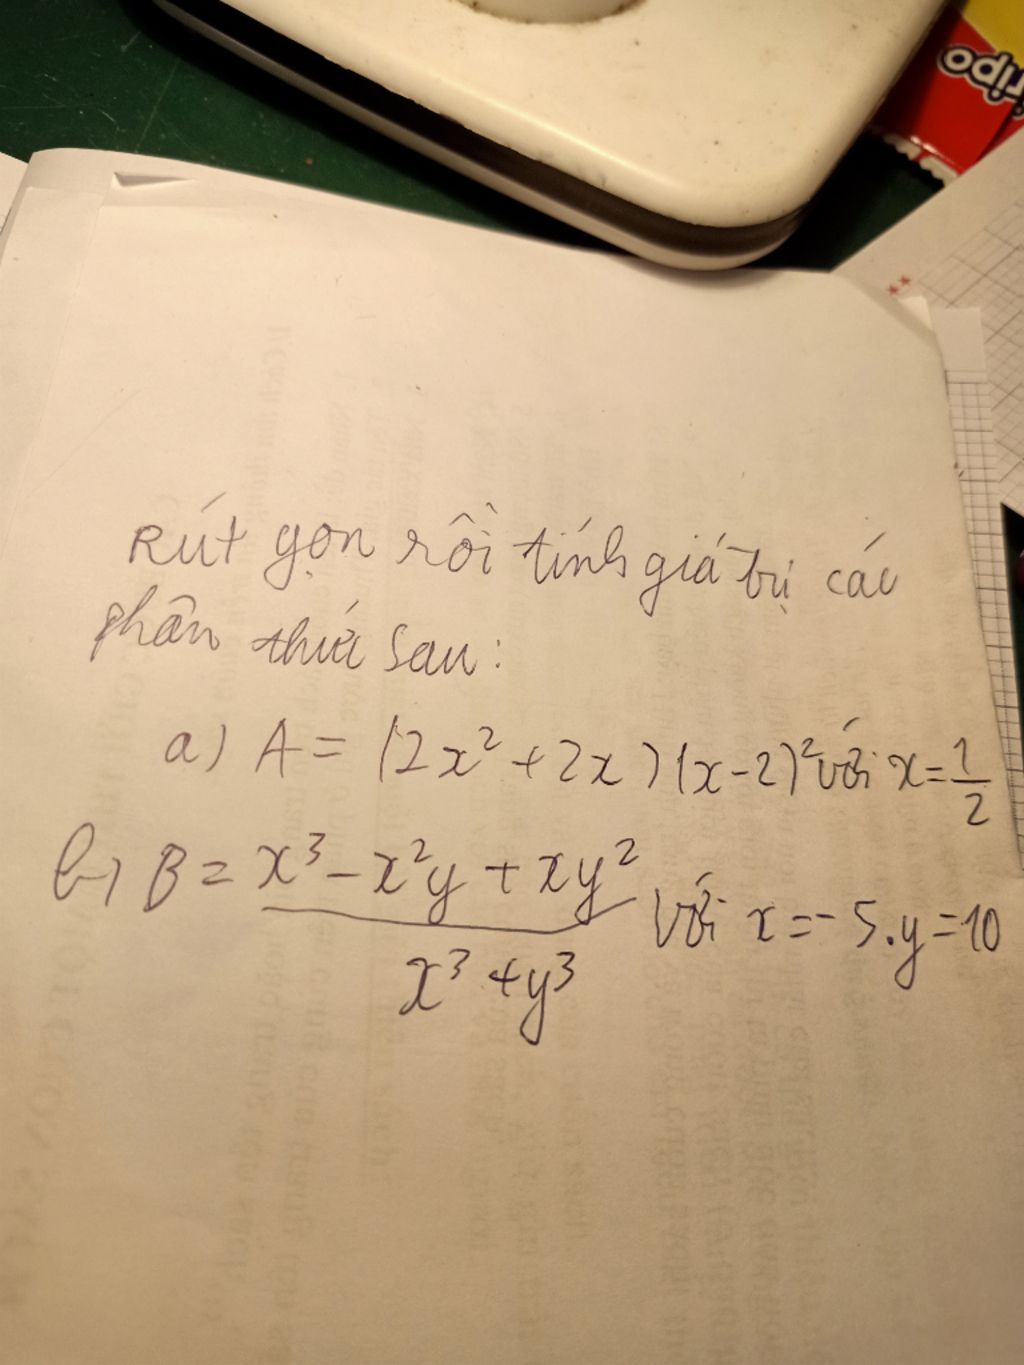 ripo
Rút gọn rồi tính giá trị các
phân thức sau:
a) A = (2x² + 2x)(x-2)² với x = 1/2
b, B = x³ - x²y + xy² / x³ + y³ với x = - 5. y = 10